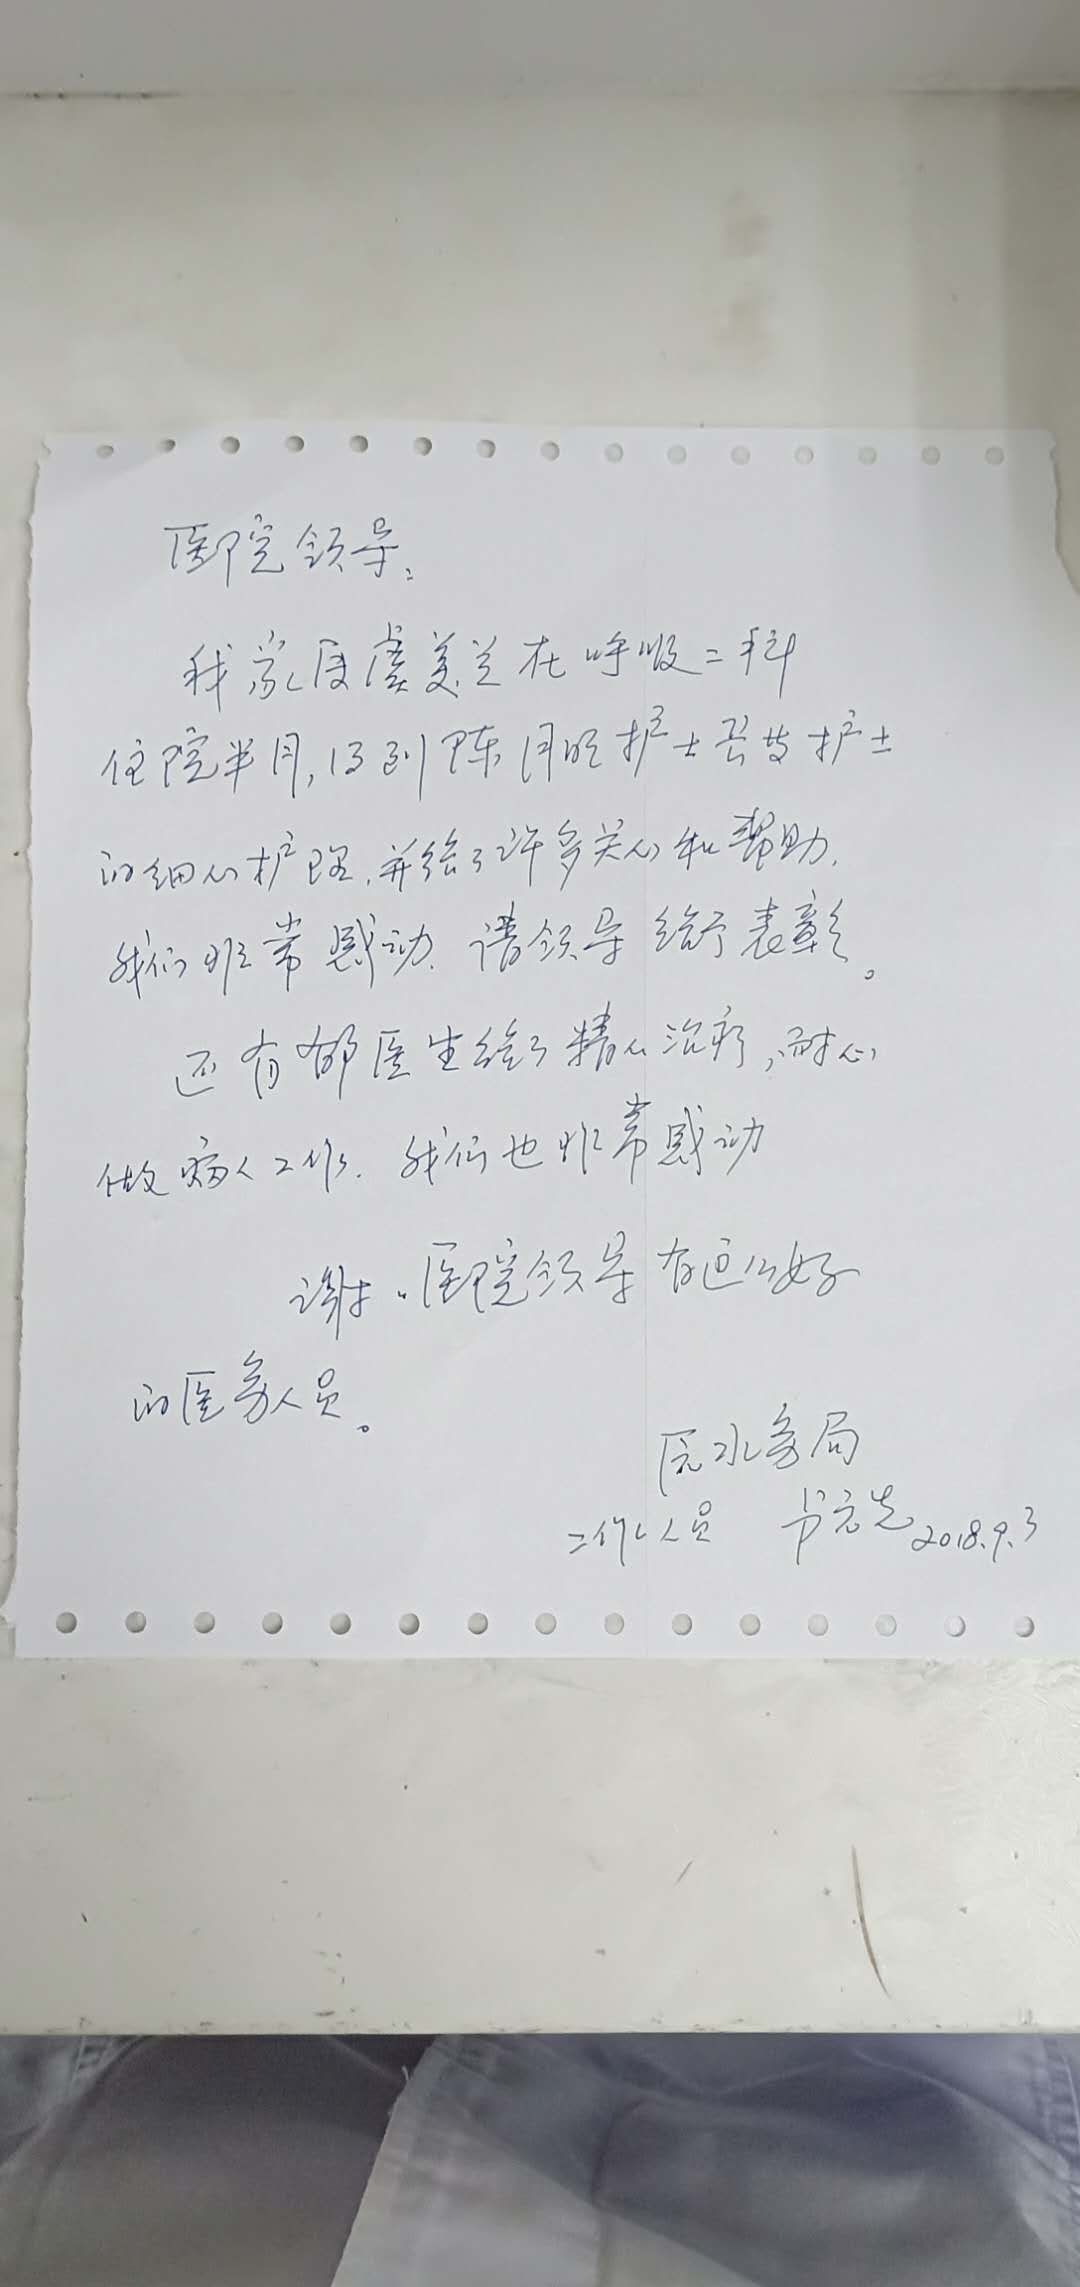 医院领导：
我家属虞美兰在呼吸二科
住院半月，得到陈月旺护士 护士
的细心护理，并给了许多关心和帮助，
我们非常感动，请领导给予表彰。
还有郁医生给了精心治疗，耐心
做病人工作，我们也非常感动
谢谢医院领导有这么好
的医务人员。
原水务局
工作人员 元 2018.9.3